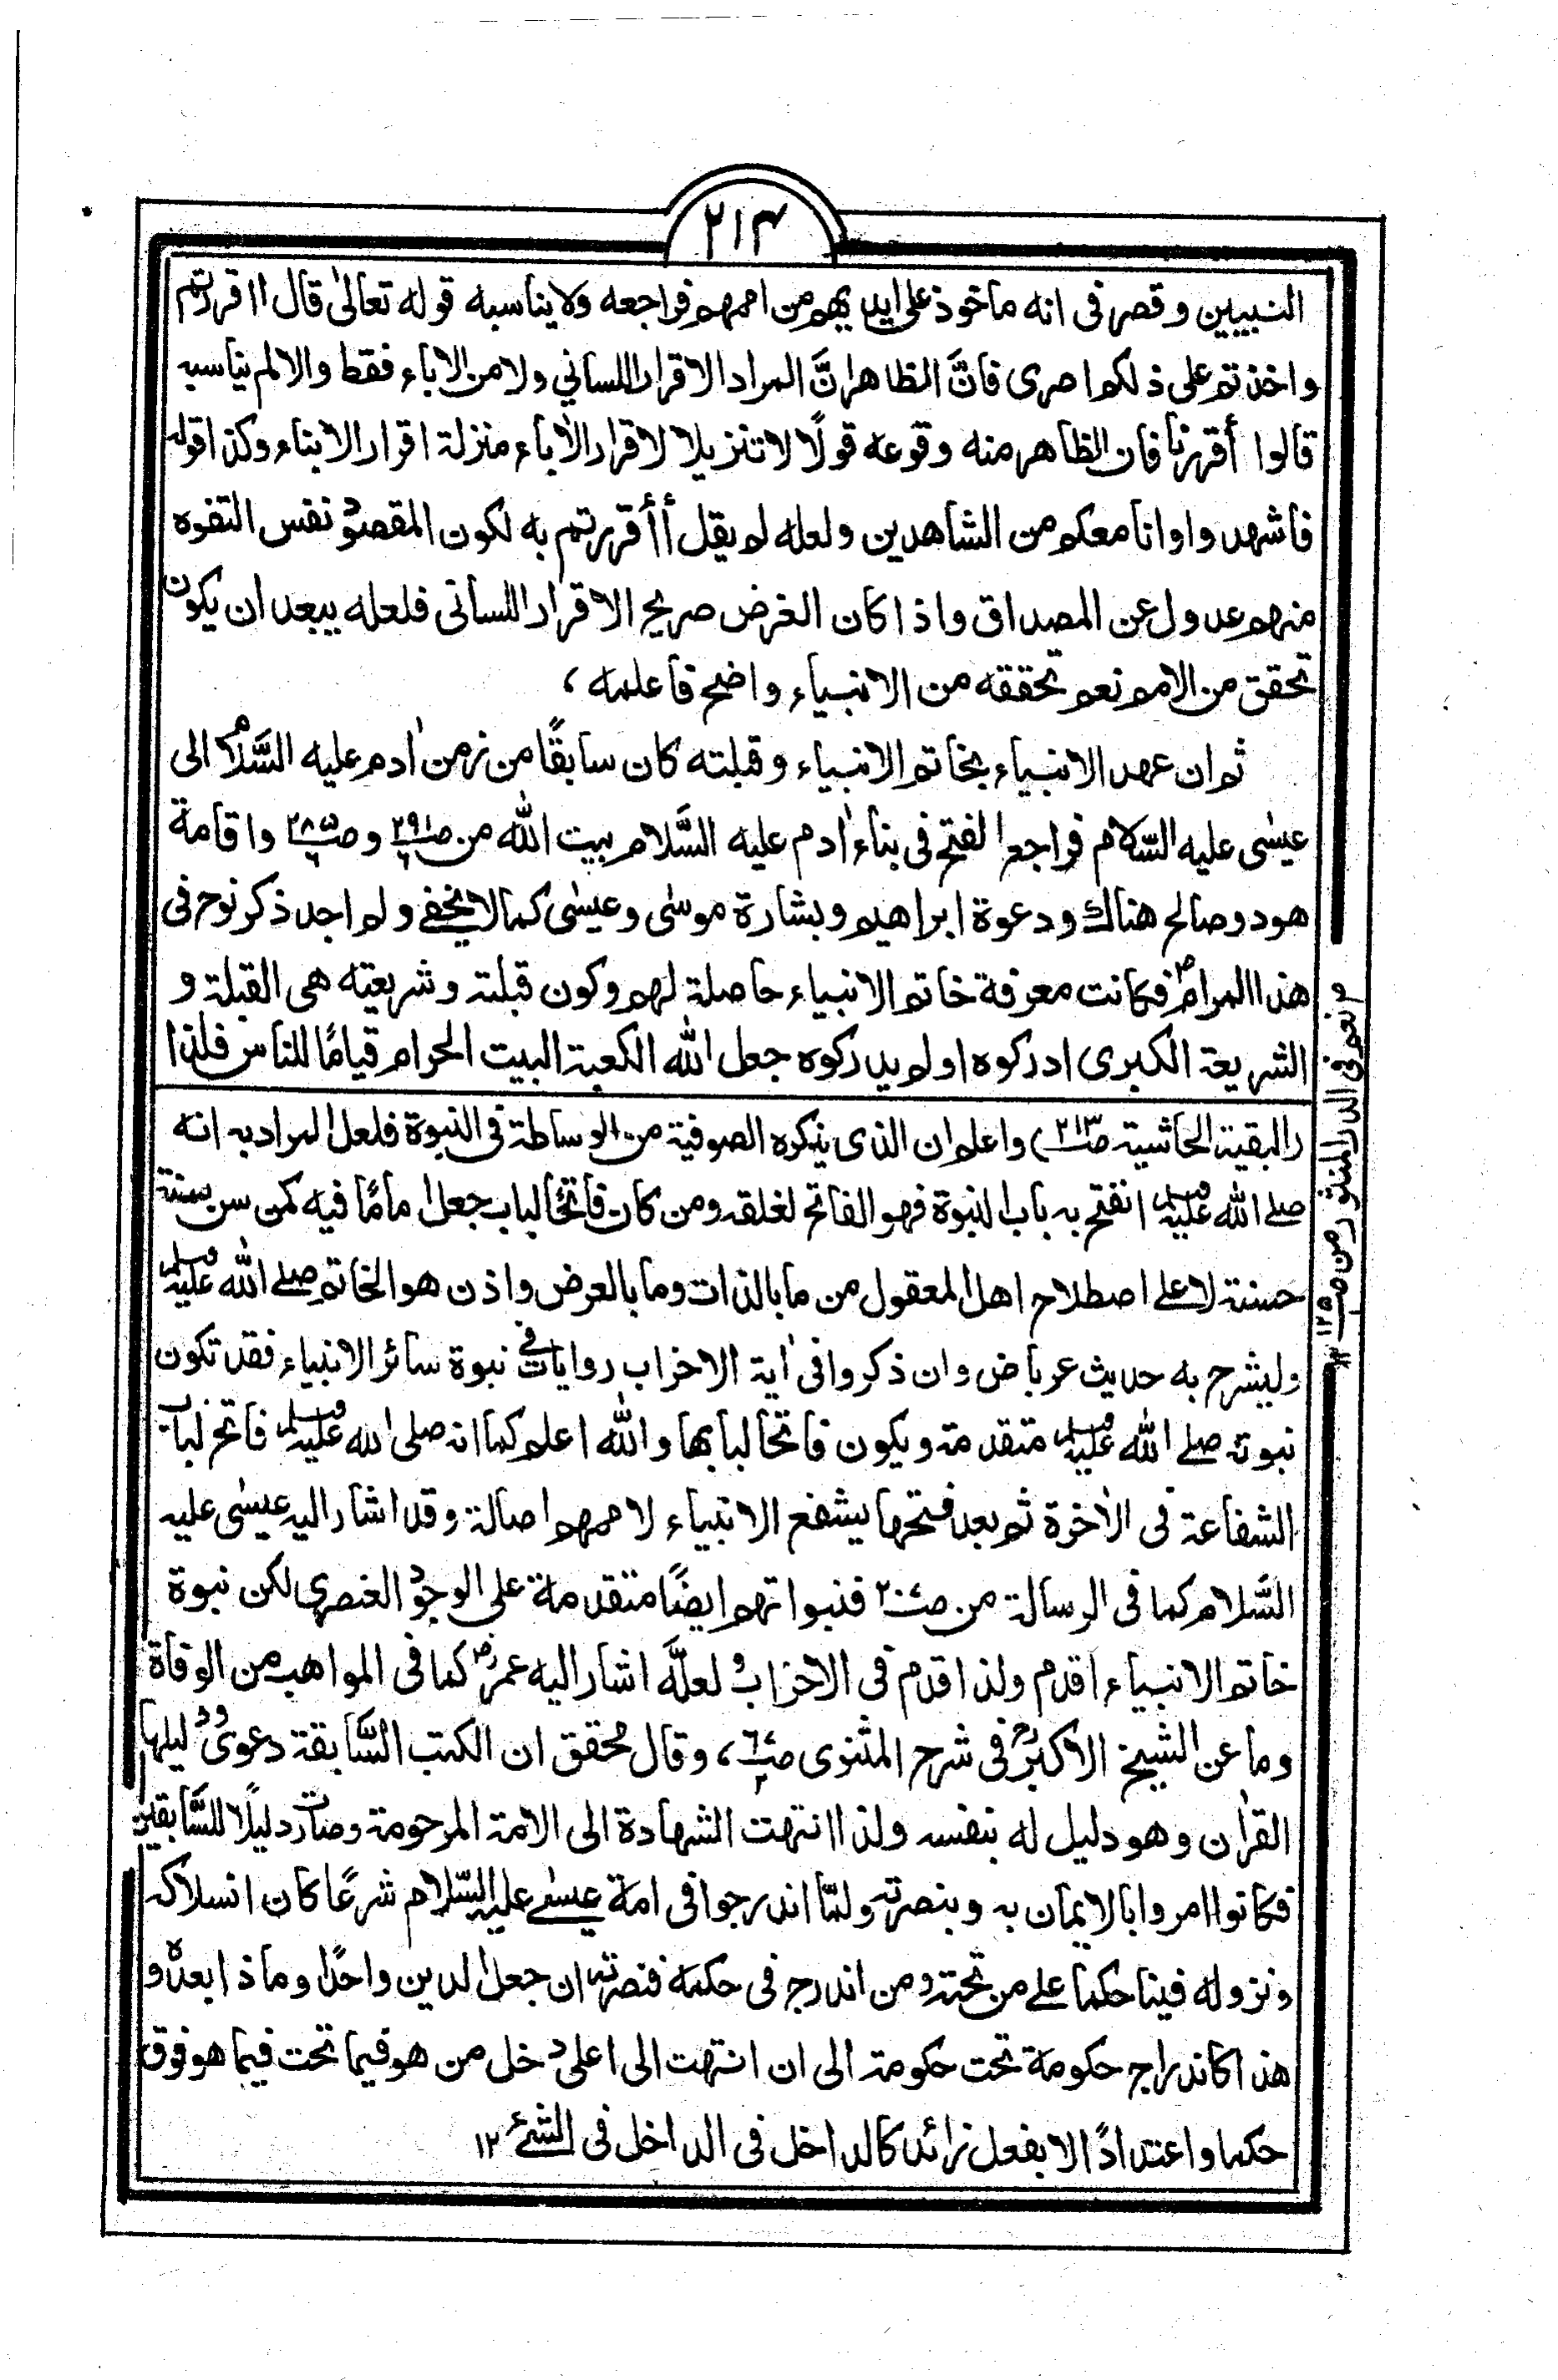 ٢١٤
النبيين وقصر فى انه ماخوذ على ايديهم من اممهم فراجعه ولا يناسبه قوله تعالىٰ قال ءاقررتم
واخذتم على ذلكم اصرى فانَّ الظاهر انَّ المراد الاقرار اللساني ولا من الاباء فقط والا لم يناسبه
قالوا أقررنا فان الظاهر منه وقوعه قولًا لا تنزيلا لاقرار الأباء منزلة اقرار الابناء وكذا قوله
فاشهدوا وانا معكم من الشاهدين ولعله لم يقل أأقررتم به لكون المقصود نفس التفوه
منهم عدول عن المصداق واذا كان الغرض صريح الاقرار اللسانى فلعله يبعد ان يكون
تحقق من الامم نعم تحققه من الانبياء واضح فاعلمه ،
ثم ان عهد الانبياء بخاتم الانبياء وقبلته كان سابقًا من زمن اٰدم عليه السَّلام الى
عيسٰى عليه السّلام فراجع الفتح فى بناء اٰدم عليه السَّلام بيت اللّٰه من ص٢٩١ وص٢٨٥ واقامة
هود وصالح هناك ودعوة ابراهيم وبشارة موسٰى وعيسٰى كما لا يخفے ولم اجد ذكر نوح فى
هذا المرام فكانت معرفة خاتم الانبياء حاصلة لهم وكون قبلته وشريعته هى القبلة و
الشريعة الكبرى ادركوه اولم يدركوه جعل اللّٰه الكعبة البيت الحرام قيامًا للناس فلذا
م نعم فى الدر المنثور من ص١٢٥
(البقية الحاشية ص٢١٣) واعلم ان الذى يذكره الصوفية من الوساطة فى النبوة فلعل المراد به انه
صلے اللّٰه عليه وسلم انفتح به باب النبوة فهو الفاتح لغلقه ومن كان فاتحًا لباب جعل امامًا فيه كمن سن سنة
حسنة لا علے اصطلاح اهل المعقول من ما بالذات وما بالعرض واذن هو الخاتم صلے اللّٰه عليه وسلم
وليشرح به حديث عرباض وان ذكروا فى اٰية الاحزاب روايات فى نبوة سائر الانبياء فقد تكون
نبوته صلے اللّٰه عليه وسلم متقدمة ويكون فاتحا لبابها واللّٰه اعلم كما انه صلى الله عليه وسلم فاتح لباب
الشفاعة فى الاٰخرة ثم بعد فتحها يشفع الانبياء لاممهم اصالة وقد اشار اليه عيسٰى عليه
السَّلام كما فى الرسالة من ص٢٠٤ فنبواتهم ايضًا متقدمة على الوجود العنصرى لكن نبوة
خاتم الانبياء اقدم ولذا قدم فى الاحزاب ولعلَّه اشار اليه عمرؓ كما فى المواهب من الوفاة
وما عن الشيخ الاكبرؒ فى شرح المثنوى ص ، وقال محقق ان الكتب السَّابقة دعوىٰ ودليلها
القراٰن وهو دليل له بنفسه ولذا انتهت الشهادة الى الامة المرحومة وصارت دليلًا للسَّابقين
فكانوا امروا بالايمان به وبنصرته ولمّا اندرجوا فى امة عيسٰے عليه السّلام شرعًا كان انسلاكه
ونزوله فينا حكما علے من تحته ومن اندرج فى حكمه فنصرته ان جعل الدين واحدًا وماذا بعده و
هذا كاندراج حكومة تحت حكومة الى ان انتهت الى اعلى دخل من هو فيما تحت فيما هو فوق
حكما واعتدادًا لا بفعل زائد كالداخل فى الداخل فى الشئ ١٢